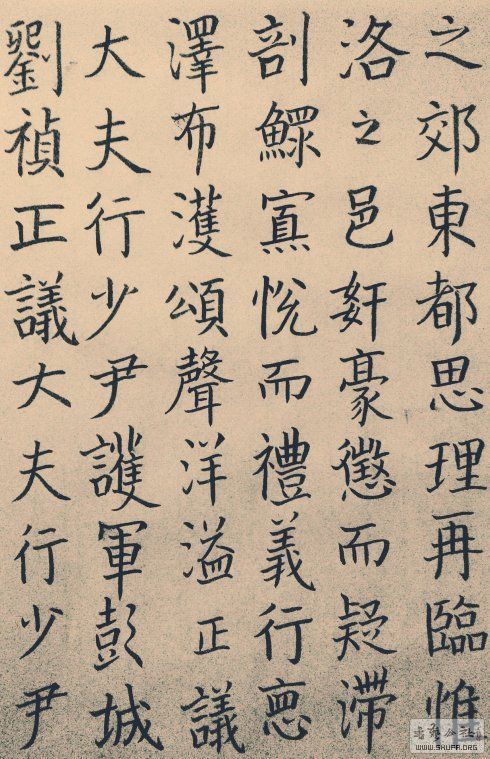 之郊東都思理再臨惟
洛之邑奸豪懲而疑滯
剖鰥寡悅而禮義行惠
澤布濩頌聲洋溢正議
大夫行少尹護軍彭城
劉禎正議大夫行少尹
WWW.SHUFA.ORG